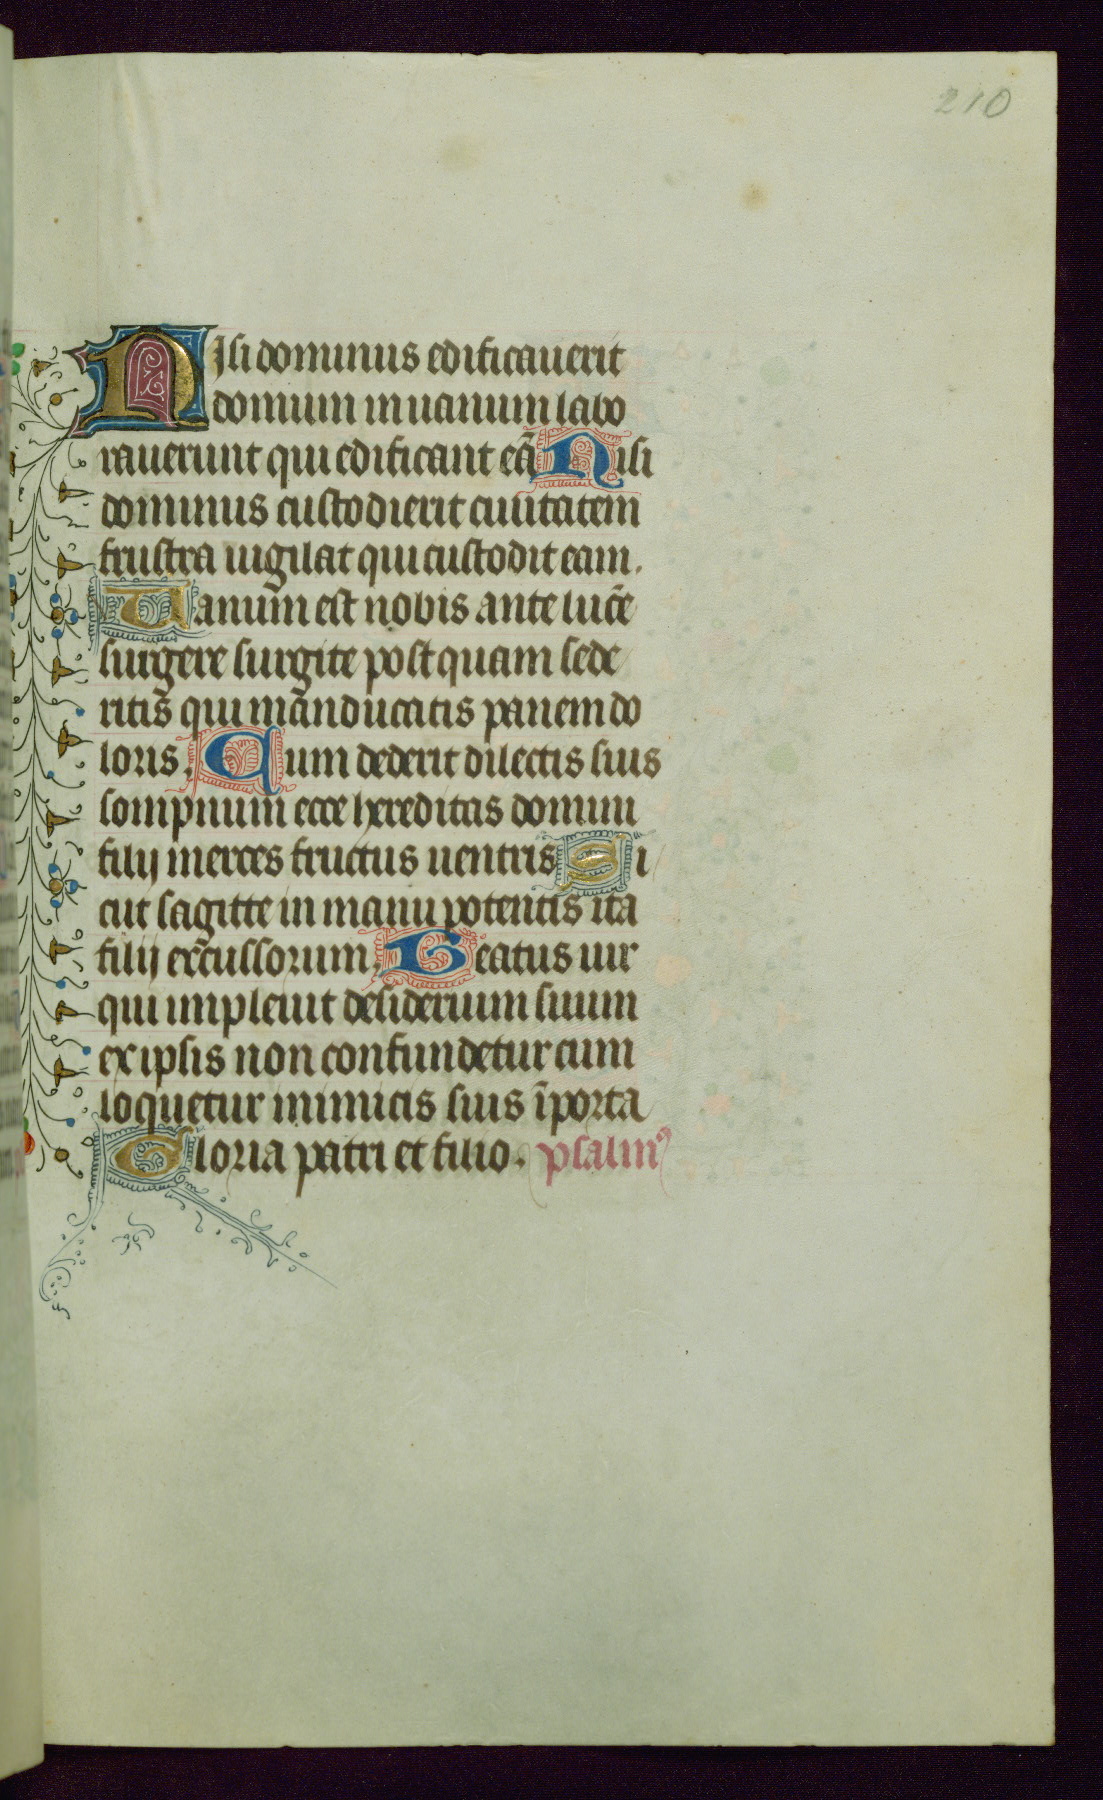 210
Nisi dominus edificauerit
domum in uanum labo
rauerunt qui edificant eā Nisi
dominus custodierit ciuitatem
frustra uigilat qui custodit eam.
Uanum est uobis ante lucē
surgere surgite post quam sede
ritis qui manducatis panem do
loris. Cum dederit dilectis suis
sompnum ecce hereditas domini
filij merces fructus uentris Si
cut sagitte in manu potentis ita
filij excussorum. Beatus uir
qui impleuit desiderium suum
ex ipsis non confundetur cum
loquetur inimicis suis ī porta
Gloria patri et filio. psalmꝰ